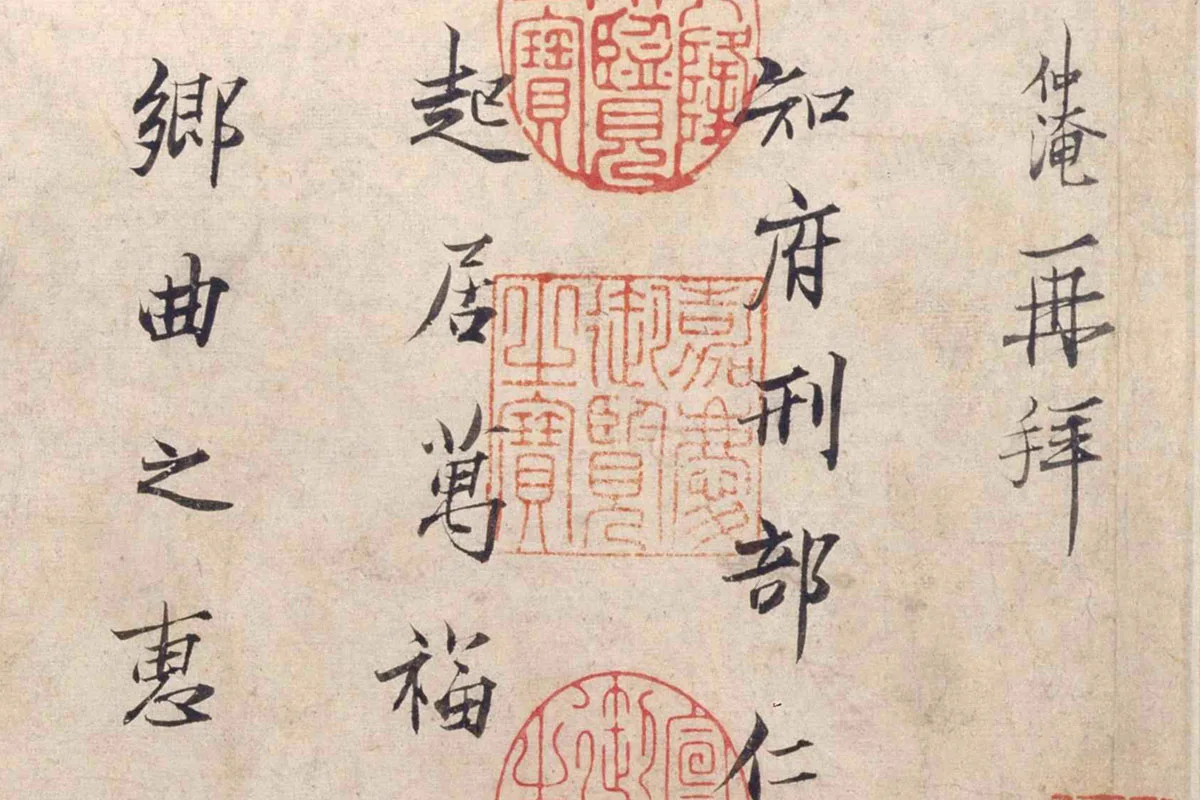 仲淹再拜
知府刑部仁
起居萬福
鄉曲之惠
嘉慶御覽之寶